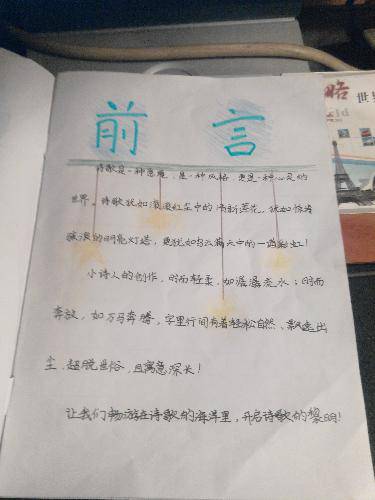 前言
诗歌是一种意境,是一种风格,更是一种心灵的
世界。诗歌犹如滚滚红尘中的清新莲花,犹如惊涛
骇浪的明亮灯塔,更犹如乌云满天中的一道彩虹!
小诗人的创作,时而轻柔,如潺潺流水;时而
奔放,如万马奔腾,字里行间有着轻松自然、飘逸出
尘、超脱世俗,且寓意深长!
让我们畅游在诗歌的海洋里,开启诗歌的黎明!
略
世界